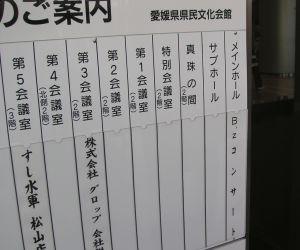 のご案内
愛媛県県民文化会館
メインホール Bzコンサート
サブホール
真珠の間(2階)
特別会議室(2階)
第1会議室(2階)
第2会議室(2階)
第3会議室(2階) 株式会社 グロップ 会社
第4会議室(北側2階)
第5会議室(3階) すし水軍 松山店